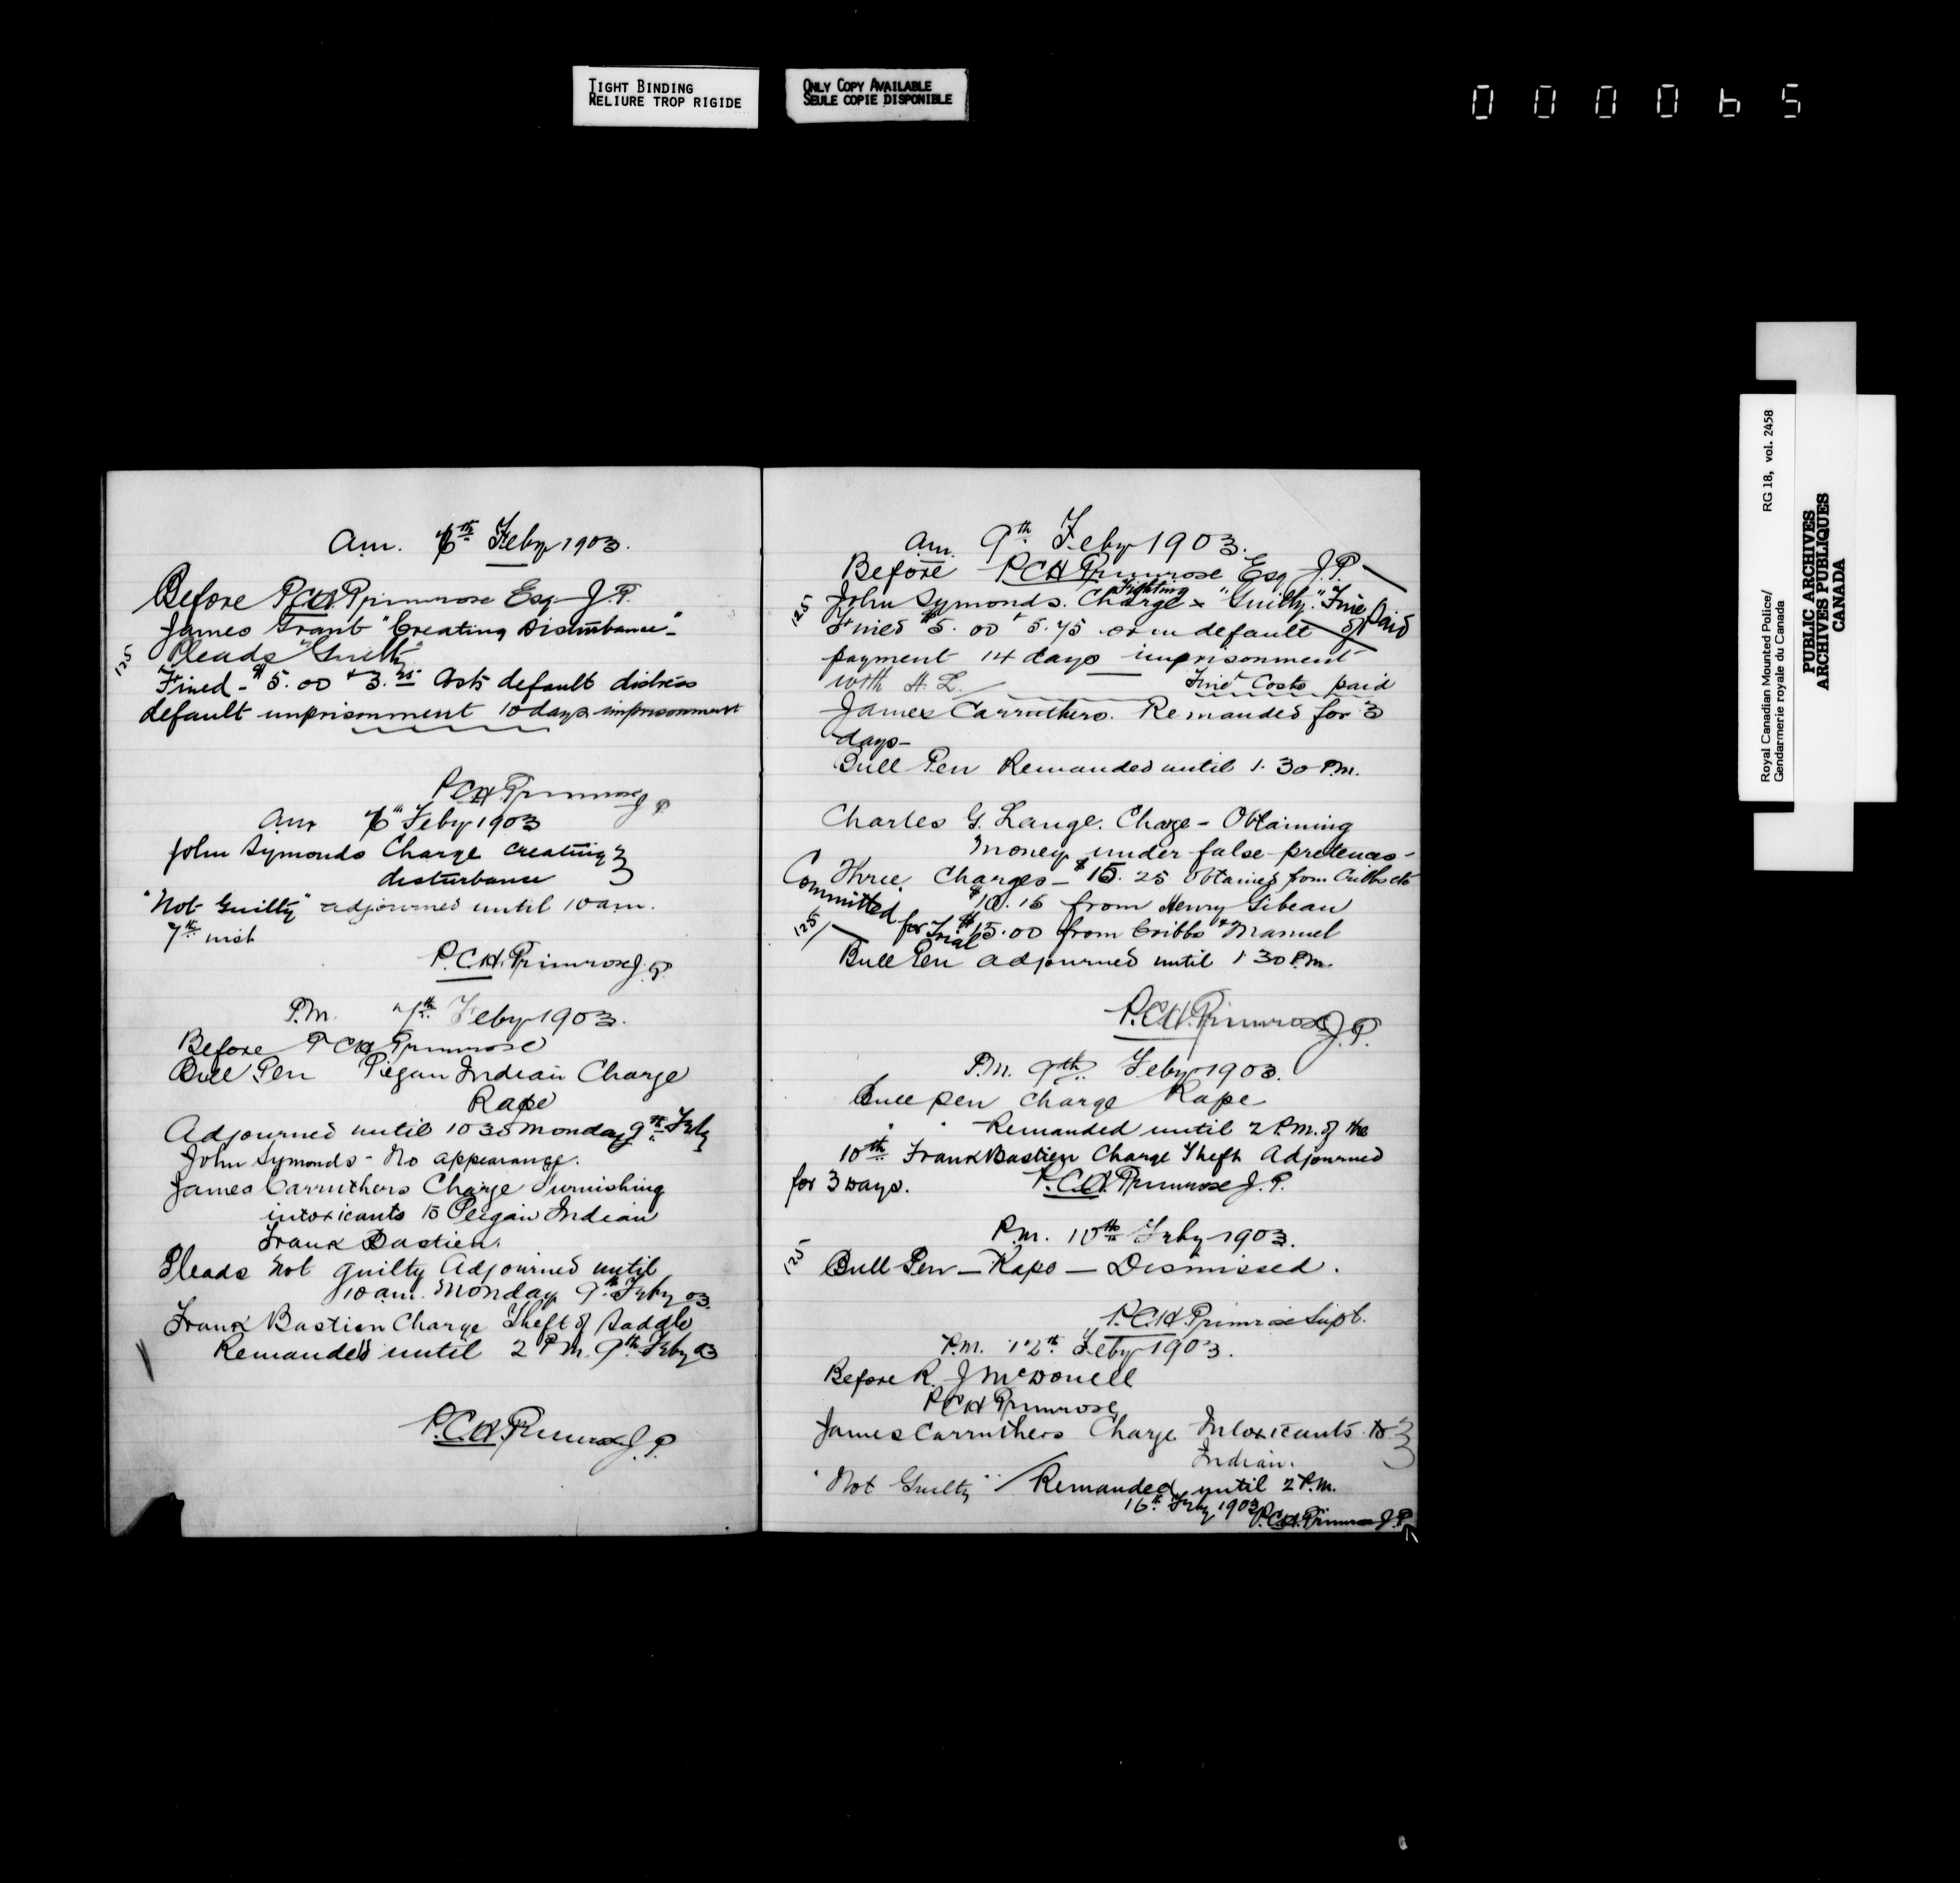 TIGHT BINDING
RELIURE TROP RIGIDE
ONLY COPY AVAILABLE
SEULE COPIE DISPONIBLE
0 0 0 0 6 5
a.m. 6th Feby 1903.
Before P.C.H. Primrose Esq J.P.
James Grant "Creating Disturbance"-
Pleads "Guilty"
125
Fined - $5.00 + 3.75 Costs default distress
default imprisonment 10 days imprisonment
P.C.H. Primrose J.P.
am 6th Feby 1903
John Symonds Charge Creating
disturbance
"Not Guilty" adjourned until 10 am.
7th inst
P.C.H. Primrose J.P.
P.M. 7th Feby 1903.
Before P.C.H. Primrose
Bull Pen Piegan Indian Charge
Rape
Adjourned until 10 30 Monday 9th Feby
John Symonds - No appearance.
James Carruthers Charge Furnishing
intoxicants to Piegan Indian
Frank Bastien.
Pleads not guilty Adjourned until
10 a.m. Monday 9th Feby 03
Frank Bastien Charge Theft of Saddle
Remanded until 2 P.M. 9th Feby 03
P.C.H. Primrose J.P.
a.m. 9th Feby 1903.
Before P.C.H. Primrose Esq J.P.
Fighting
125 John Symonds. Charge x "Guilty." Fine Paid
Fined $5.00 + 5.75 or in default of
payment 14 days imprisonment
with H.L. Fine + Costs paid
James Carruthers. Remanded for 3
days-
Bull Pen Remanded until 1.30 P.M.
Charles G. Lange. Charge - Obtaining
Money under false pretences -
Three Charges - $15.25 obtained from Cribbs etc
Committed for Trial
$10.15 from Henry Gibeau
125
$15.00 from Cribbs + Manuel
Bull Pen adjourned until 1 30 P.M.
P.C.H. Primrose J.P.
P.M. 9th Feby 1903.
Bull pen Charge Rape
" " Remanded until 2 P.M. of the
10th Frank Bastien Charge Theft Adjourned
for 3 days. P.C.H. Primrose J.P.
P.M. 10th Feby 1903.
125 Bull Pen - Rape - Dismissed.
P.C.H. Primrose Supt.
P.M. 12th Feby 1903.
Before R. J McDonell
P.C.H. Primrose
James Carruthers Charge Intoxicants to
Indian.
"Not Guilty" Remanded until 2 P.M.
16th Feby 1903 P.C.H. Primrose J.P.
Royal Canadian Mounted Police/
Gendarmerie royale du Canada
RG 18, vol. 2458
PUBLIC ARCHIVES
ARCHIVES PUBLIQUES
CANADA